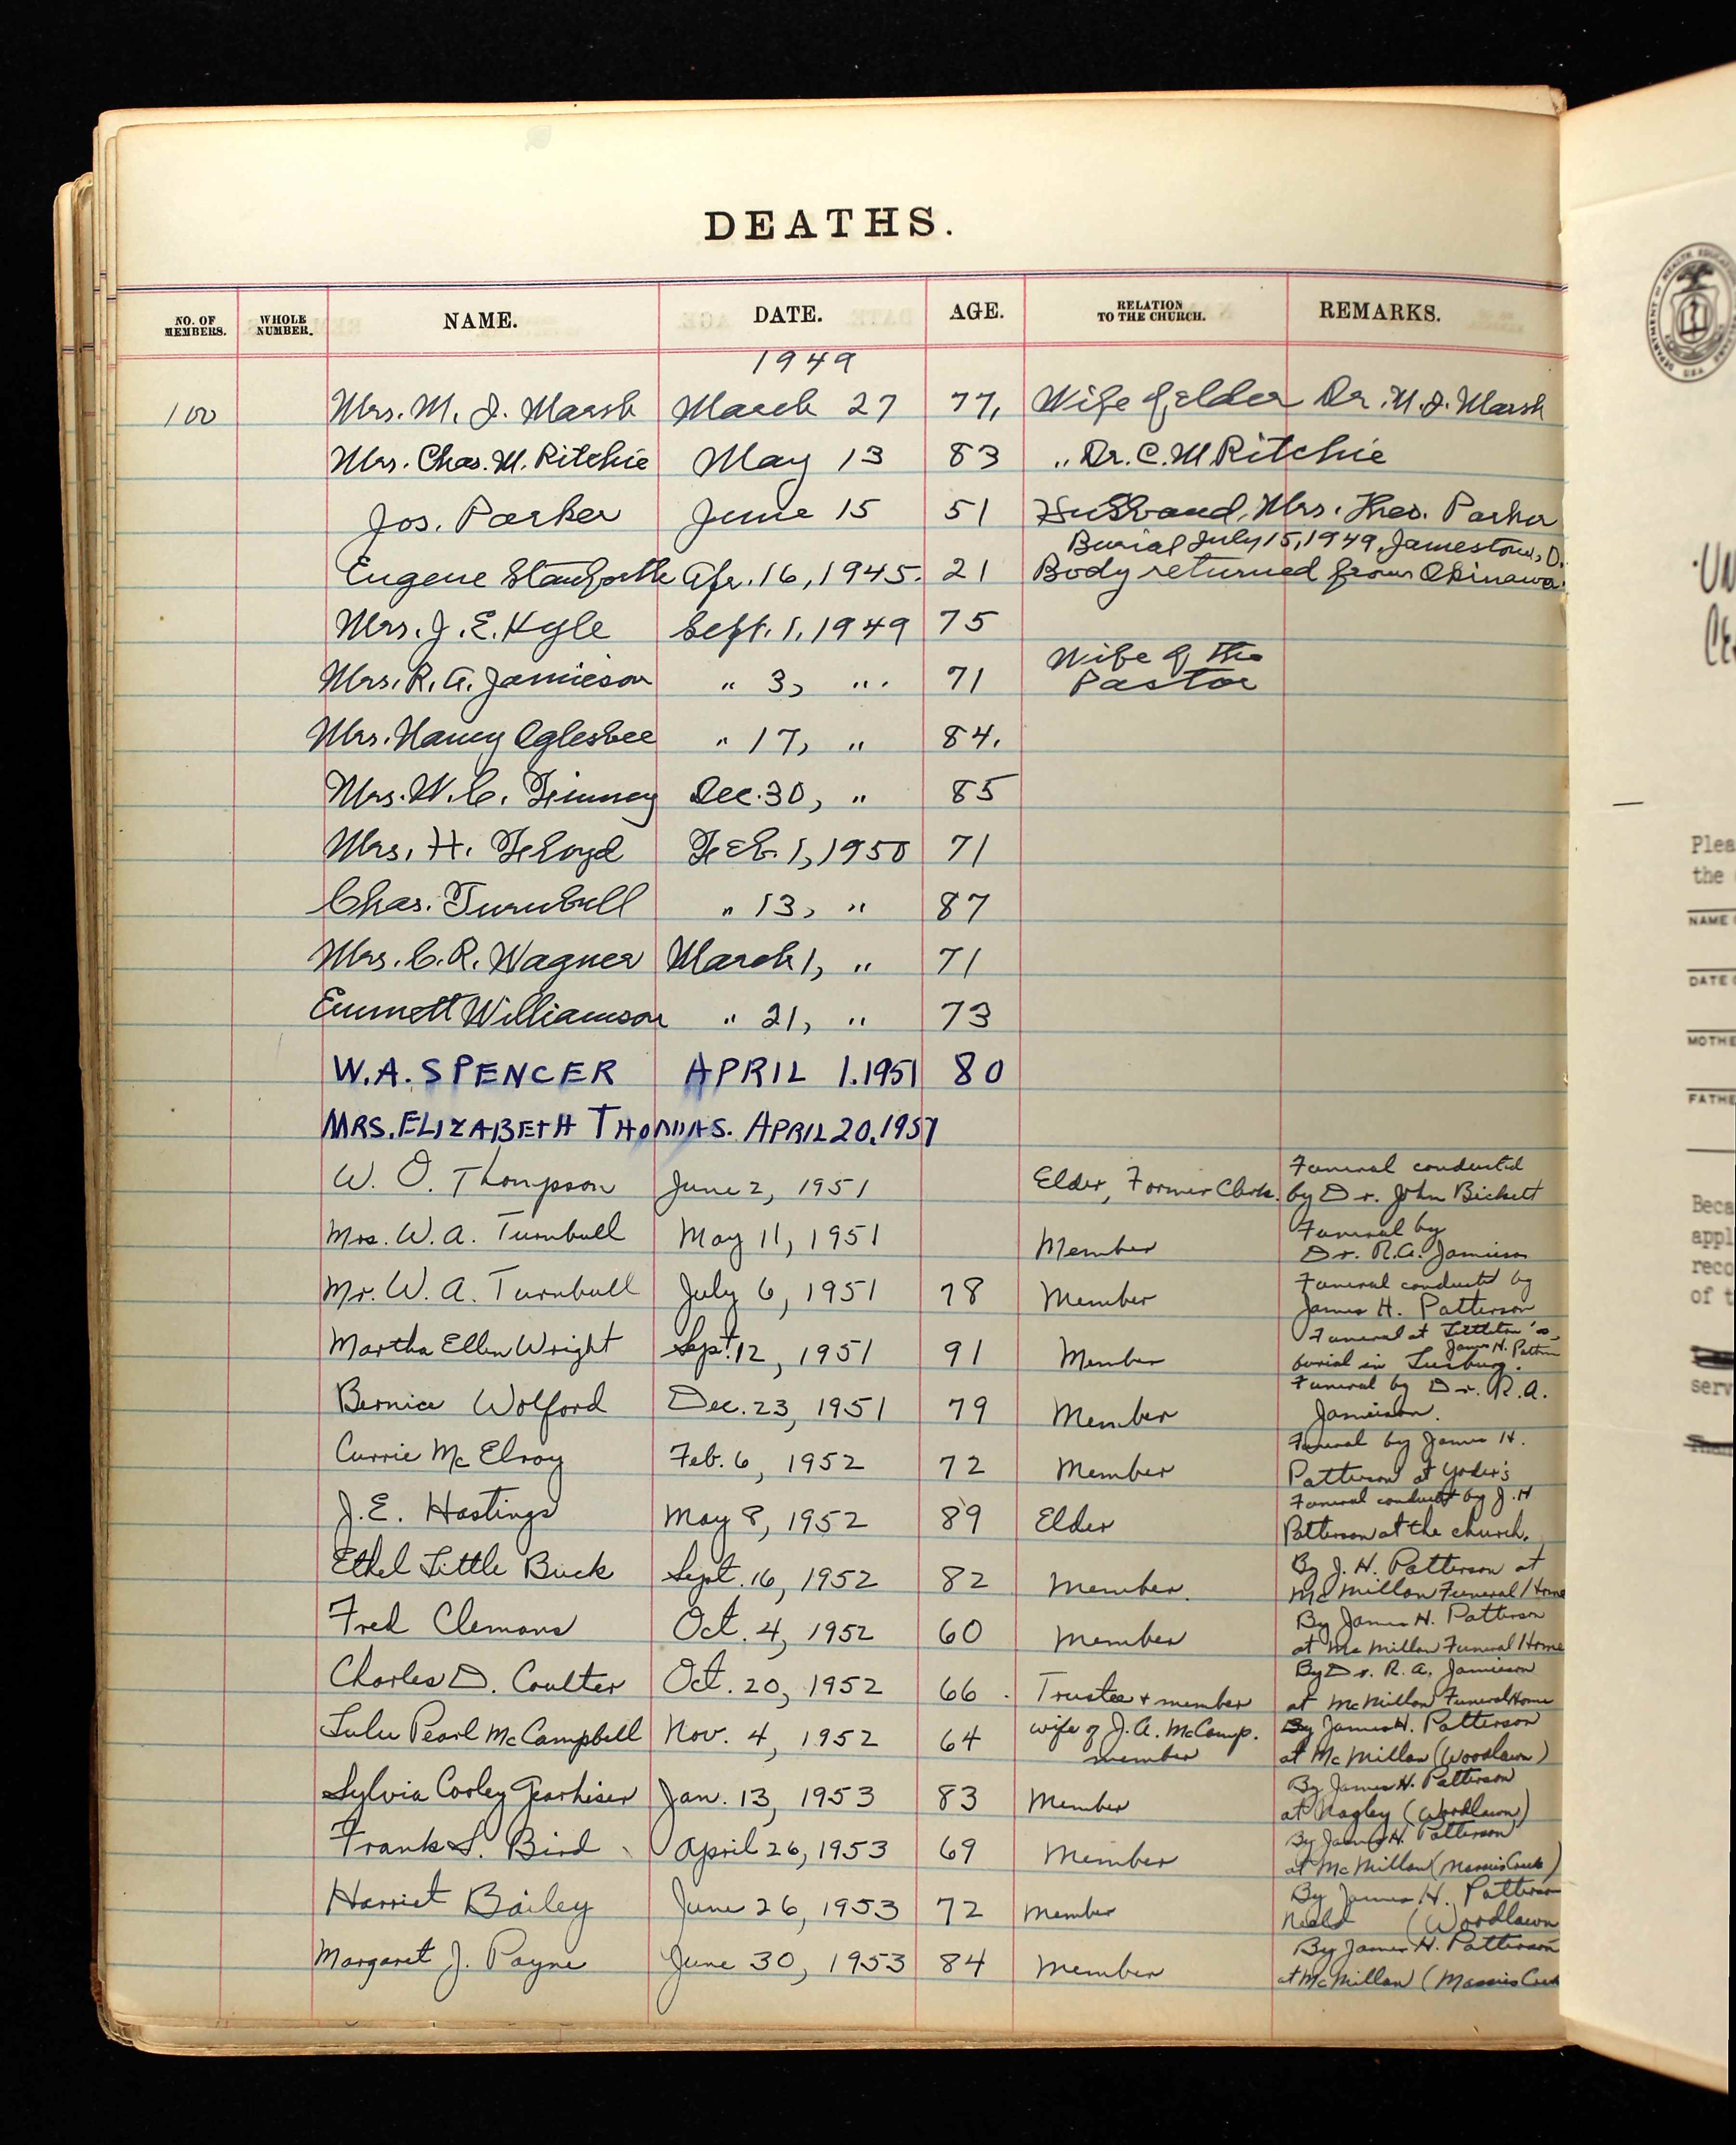 DEATHS.
NO. OF MEMBERS. WHOLE NUMBER. NAME. DATE. AGE. RELATION TO THE CHURCH. REMARKS.
1949
100 Mrs. M. J. Marsh March 27 77, Wife of elder Dr. M. J. Marsh
Mrs. Chas. M. Ritchie May 13 83 " Dr. C. M Ritchie
Jos. Parker June 15 51 Husband, Mrs. Thos. Parker
Burial July 15, 1949, Jamestown, O.
Eugene Apr. 16, 1945. 21 Body returned from Okinawa.
Mrs. J. E. Kyle Sept. 1, 1949 75
Mrs. R. A. Jamieson " 3, " 71 Wife of the Pastor
Mrs. Nancy Oglesbee " 17, " 84.
Mrs. W. C. Finney Dec. 30, " 85
Mrs. H. Floyd Feb. 1, 1950 71
Chas. Turnbull " 13, " 87
Mrs. C. R. Wagner March 1, " 71
Emmett Williamson " 21, " 73
W. A. SPENCER APRIL 1. 1951 80
MRS. ELIZABETH THOMAS. APRIL 20, 1951
W. O. Thompson June 2, 1951 Elder, Former Clerk. Funeral conducted by Dr. John Bickett
Mrs. W. A. Turnbull May 11, 1951 Member Funeral by Dr. R. A. Jamieson
Mr. W. A. Turnbull July 6, 1951 78 Member Funeral conducted by James H. Patterson
Martha Ellen Wright Sept. 12, 1951 91 Member Funeral at Littleton's James H. Patterson burial in
Bernice Wolford Dec. 23, 1951 79 Member Funeral by Dr. R. A. Jamieson.
Currie McElroy Feb. 6, 1952 72 Member Funeral by James H. Patterson at Yoder's
J. E. Hastings May 8, 1952 89 Elder Funeral conducted by J. H Patterson at the church.
Ethel Little Buck Sept. 16, 1952 82 Member. By J. H. Patterson at McMillan Funeral Home
Fred Clemans Oct. 4, 1952 60 Member By James H. Patterson at McMillan Funeral Home
Charles D. Coulter Oct. 20, 1952 66 Trustee + member By Dr. R. A. Jamieson at McMillan Funeral Home
Lulu Pearl McCampbell Nov. 4, 1952 64 wife of J. A. McCamp. member By James H. Patterson at McMillan (Woodlawn)
Sylvia Corley Gearhiser Jan. 13, 1953 83 Member By James H. Patterson at Nagley (Woodlawn)
Frank S. Bird April 26, 1953 69 Member By James H. Patterson at McMillan (Massies Creek)
Harriet Bailey June 26, 1953 72 Member By James H. Patterson Neeld (Woodlawn
Margaret J. Payne June 30, 1953 84 Member By James H. Patterson at McMillan (Massies Creek
Plea
the
NAME
DATE
MOTHE
FATHE
Beca
appl
reco
of t
serv